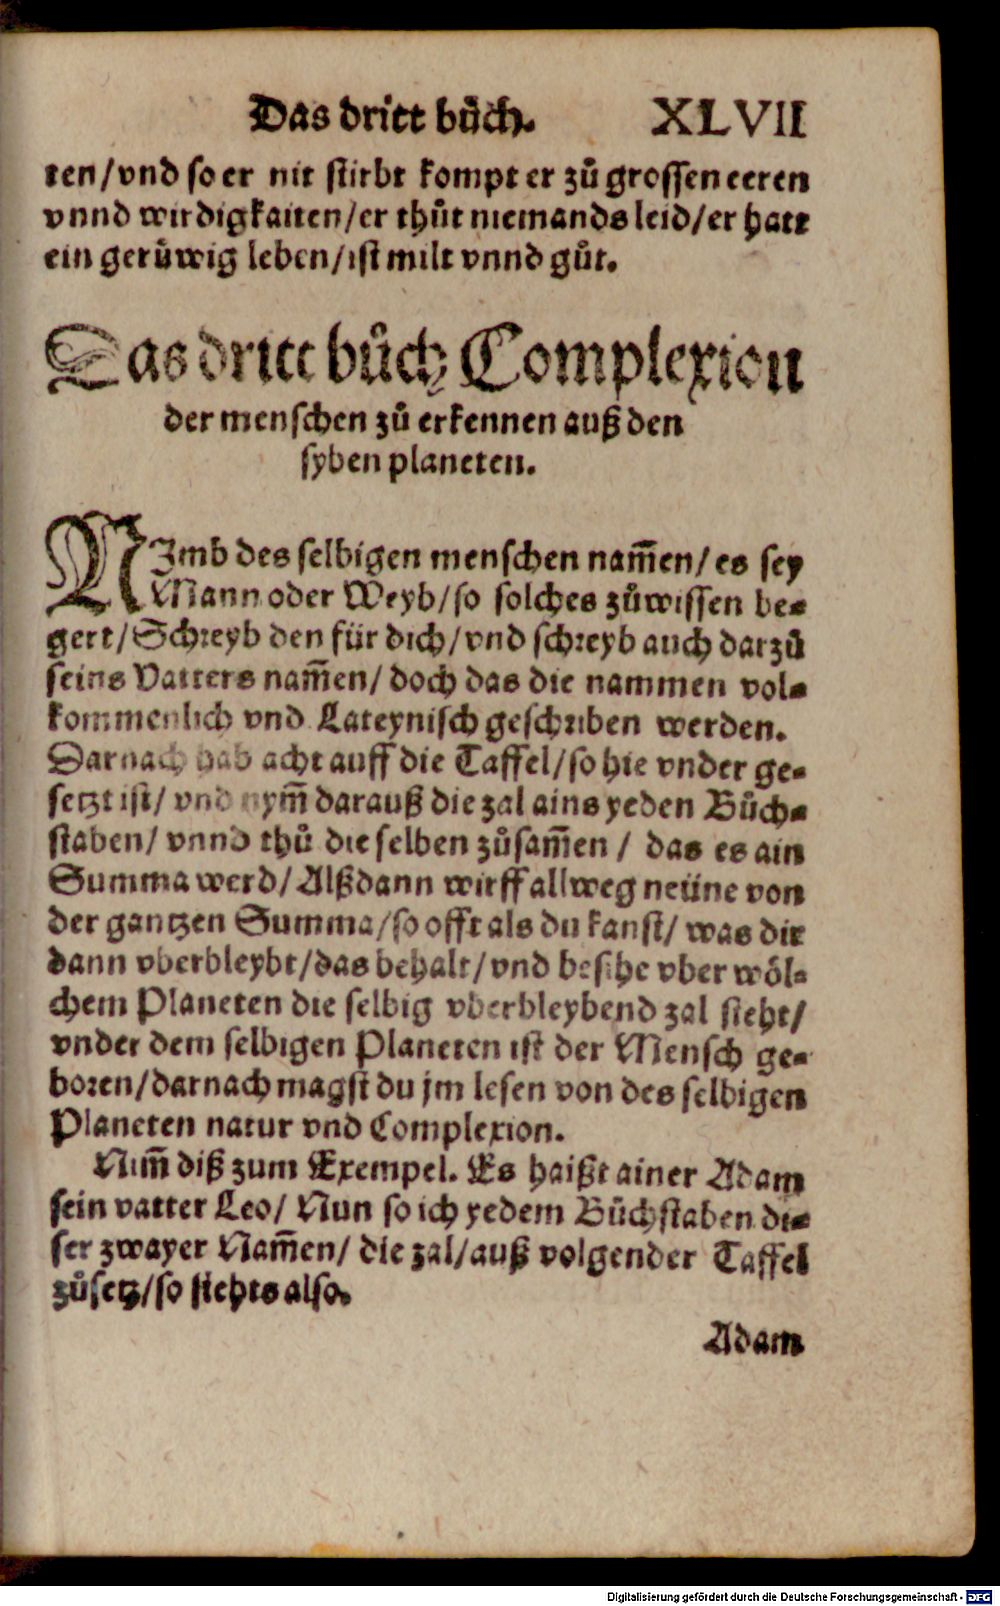 Das dritt bůch. XLVII
ten/vnd so er nit stirbt kompt er zů grossen eeren
vnnd wirdigkaiten/er thůt niemands leid/er hatt
ein gerůwig leben/ist milt vnnd gůt.
Das dritt bůch Complexion
der menschen zů erkennen auß den
syben planeten.
NJmb des selbigen menschen nam̃en/ es sey
Mann oder Weyb/so solches zůwissen be-
gert/Schreyb den für dich/vnd schreyb auch darzů
seins Vatters nam̃en/ doch das die nammen vol-
kommenlich vnd Lateynisch geschriben werden.
Darnach hab acht auff die Taffel/so hie vnder ge-
setzt ist/ vnd nym̃ darauß die zal ains yeden Bůch-
staben/ vnnd thů die selben zůsam̃en / das es ain
Summa werd/ Alßdann wirff allweg neüne von
der gantzen Summa/so offt als du kanst/ was dir
dann vberbleybt/das behalt/vnd besihe vber wöl-
chem Planeten die selbig vberbleybend zal steht/
vnder dem selbigen Planeten ist der Mensch ge-
boren/darnach magst du jm lesen von des selbigen
Planeten natur vnd Complexion.
Nim̃ diß zum Exempel. Es haißt ainer Adam
sein vatter Leo/ Nun so ich yedem Bůchstaben di-
ser zwayer Nam̃en/ die zal/auß volgender Taffel
zůsetz/so stehts also.
Adam
Digitalisierung gefördert durch die Deutsche Forschungsgemeinschaft - DFG